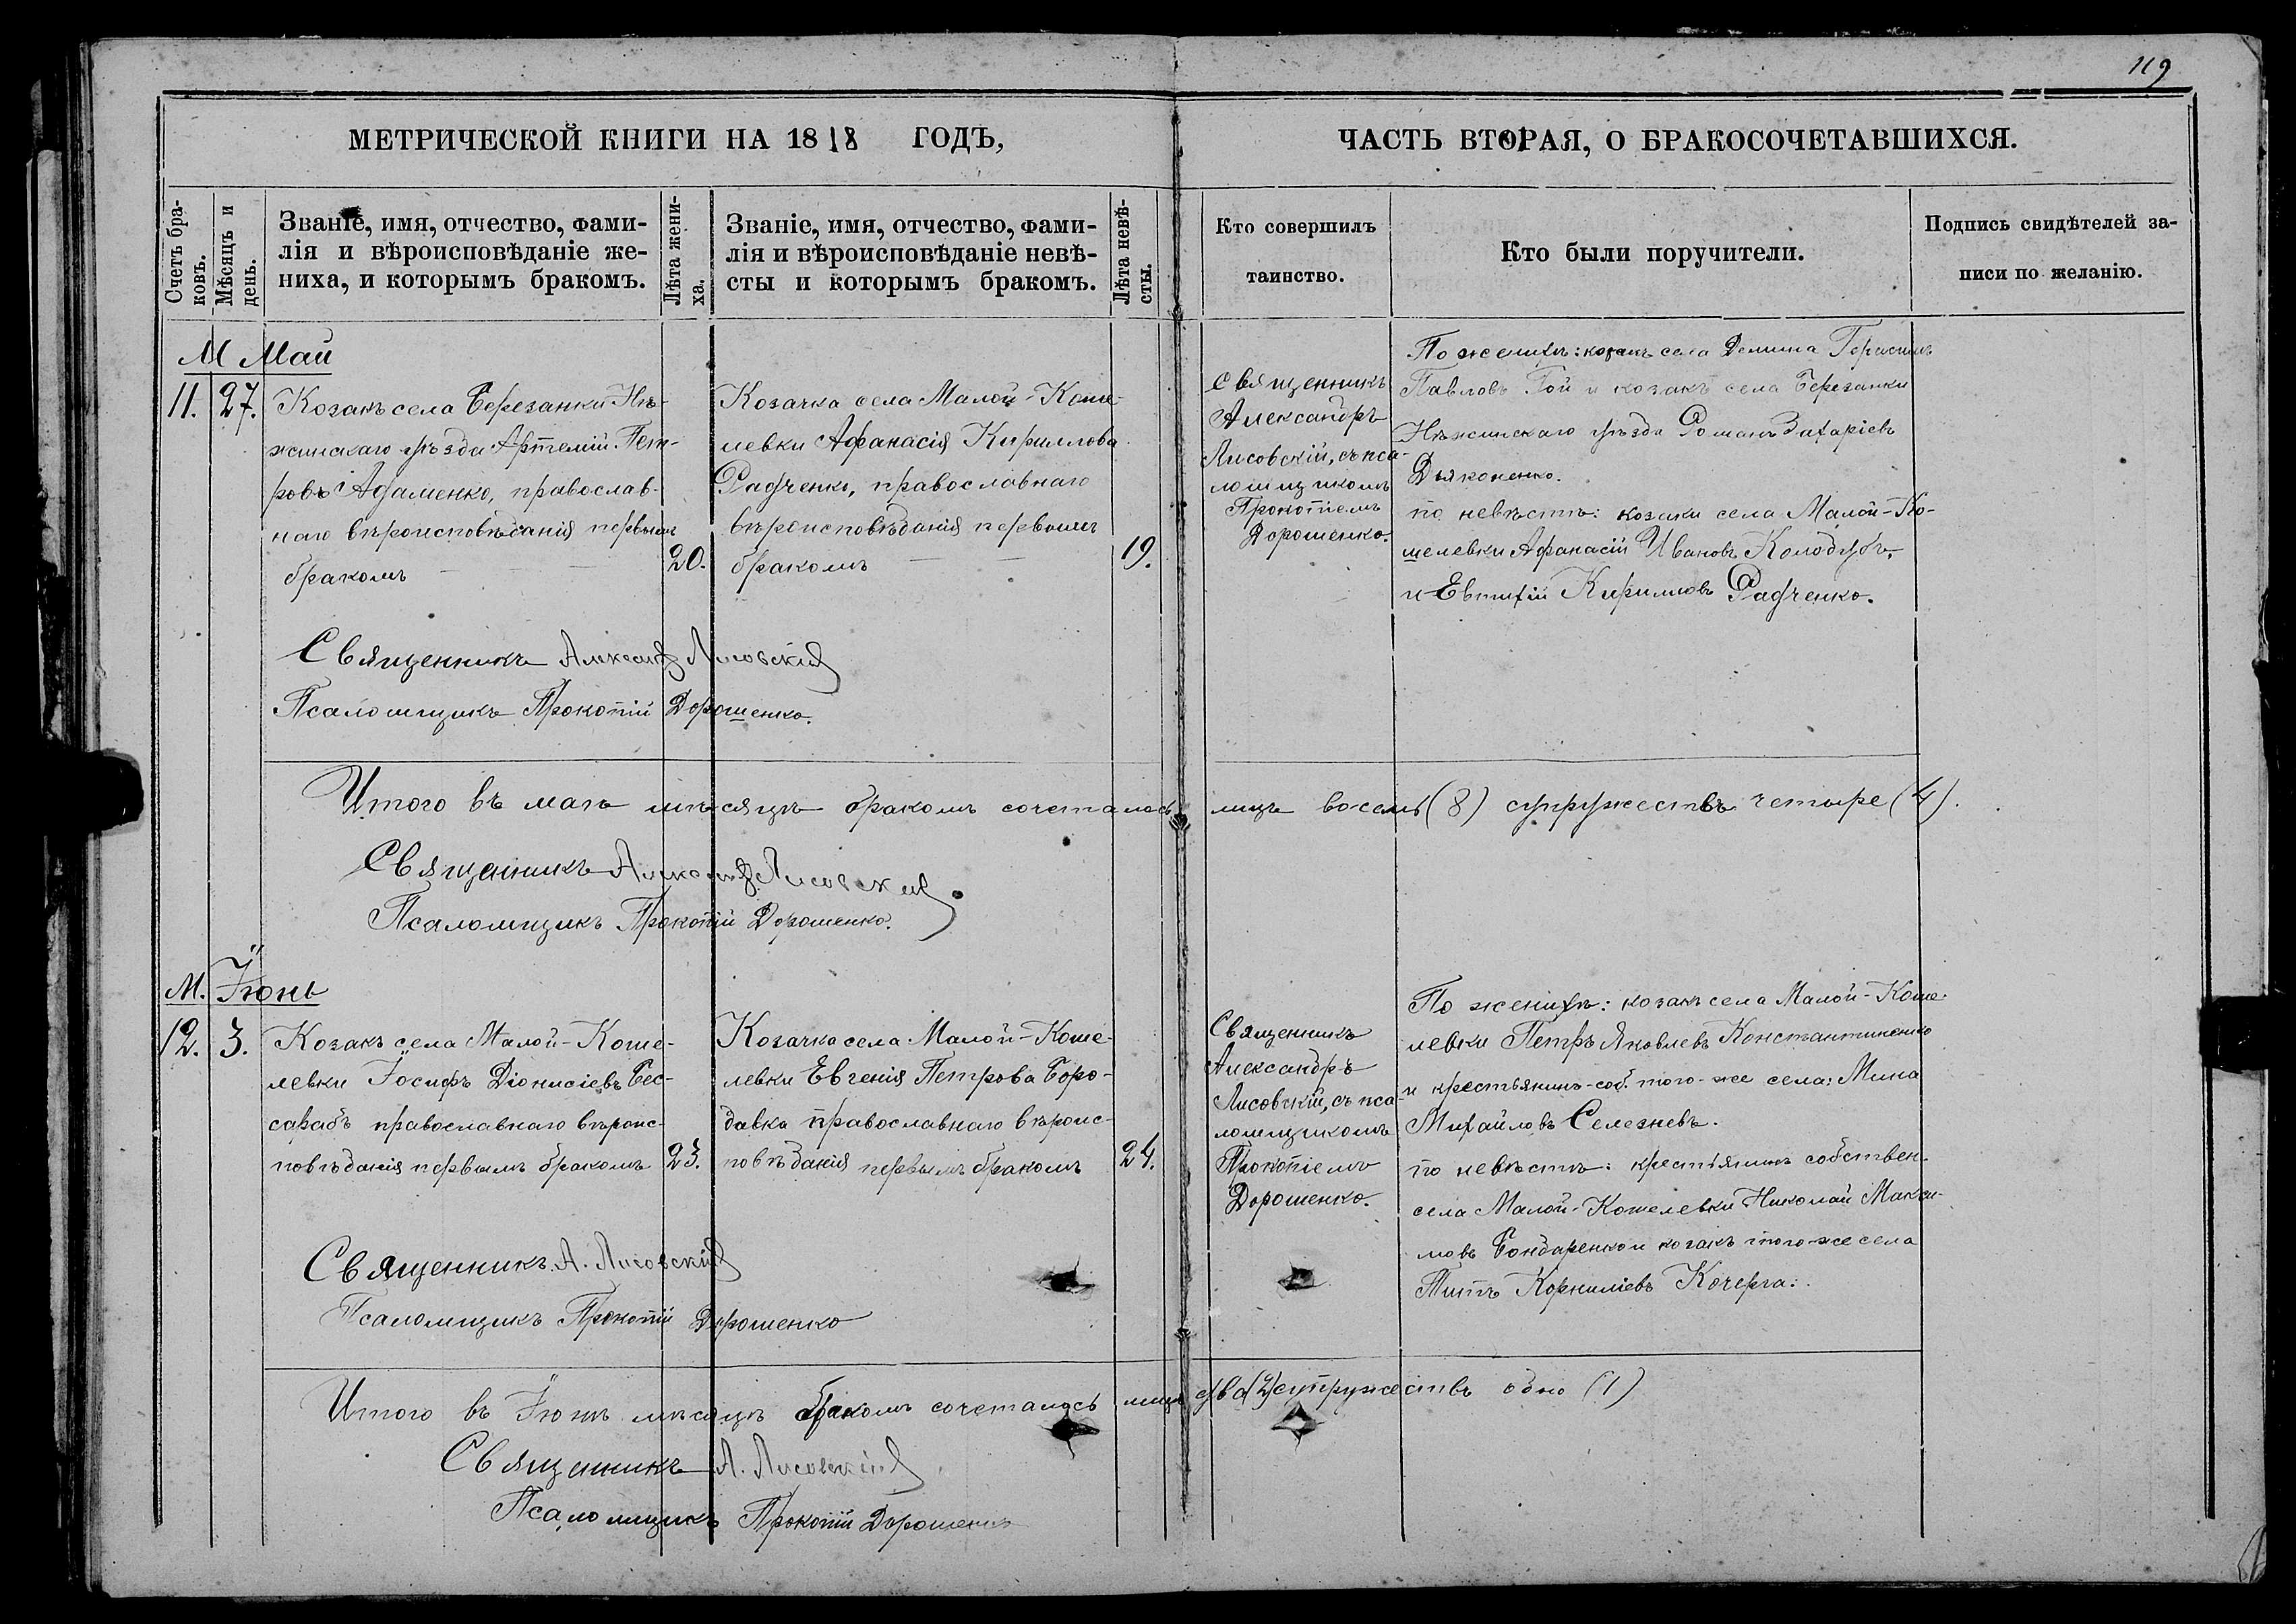 119
МЕТРИЧЕСКОЙ КНИГИ НА 1888 ГОДЪ,
ЧАСТЬ ВТОРАЯ, О БРАКОСОЧЕТАВШИХСЯ.
Счетъ бра-
ковъ.
Мѣсяцъ и
день.
Званіе, имя, отчество, фами-
лія и вѣроисповѣданіе же-
ниха, и которымъ бракомъ.
Лѣта жени-
ха.
Званіе, имя, отчество, фами-
лія и вѣроисповѣданіе невѣ-
сты и которымъ бракомъ.
Лѣта невѣ-
сты.
Кто совершилъ
таинство.
Кто были поручители.
Подпись свидѣтелей за-
писи по желанію.
М Май
11. 27.
Козакъ села Березанки Нѣ-
жинскаго уѣзда Артемій Пет-
ровъ Адаменко, православ-
наго вѣроисповѣданія первымъ
бракомъ
20.
Козачка села Малой-Коше-
левки Афанасія Кириллова
Радченко, православнаго
вѣроисповѣданія первымъ
бракомъ
19.
Священникъ
Александръ
Лисовскій, съ пса-
ломщикомъ
Прокопіемъ
Дорошенко.
По женихѣ: козакъ села Демина Герасимъ
Павловъ Гой и козакъ села Березанки
Нѣжинскаго уѣзда Романъ Захаріевъ
Дьяконенко.
по невѣстѣ: козаки села Малой-Ко-
шелевки Афанасій Ивановъ Колодубъ,
и Евтихій Кирилловъ Радченко.
Священникъ Александръ Лисовскій
Псаломщикъ Прокопій Дорошенко.
Итого въ маѣ мѣсяцѣ бракомъ сочеталось лицъ восемь (8) супружествъ четыре (4).
Священникъ Александръ Лисовскій
Псаломщикъ Прокопій Дорошенко.
М. Іюнь
12. 3.
Козакъ села Малой-Коше-
левки Іосифъ Діонисіевъ Бес-
сарабъ православнаго вѣроис-
повѣданія первымъ бракомъ
23.
Козачка села Малой-Коше-
левки Евгенія Петрова Боро-
давка православнаго вѣроис-
повѣданія первымъ бракомъ
24.
Священникъ
Александръ
Лисовскій, съ пса-
ломщикомъ
Прокопіемъ
Дорошенко.
По женихѣ: козакъ села Малой-Коше-
левки Петръ Яковлевъ Константиненко
и крестьянинъ-соб. того-же села: Мина
Михайловъ Селезневъ.
по невѣстѣ: крестьянинъ собствен.
села Малой-Кошелевки Николай Макси-
мовъ Бондаренко и козакъ того-же села
Титъ Корниліевъ Кочерга.
Священникъ А. Лисовскій
Псаломщикъ Прокопій Дорошенко
Итого въ Іюнѣ мѣсяцѣ бракомъ сочеталось лицъ два (2) супружествъ одно (1)
Священникъ А. Лисовскій
Псаломщикъ Прокопій Дорошенко